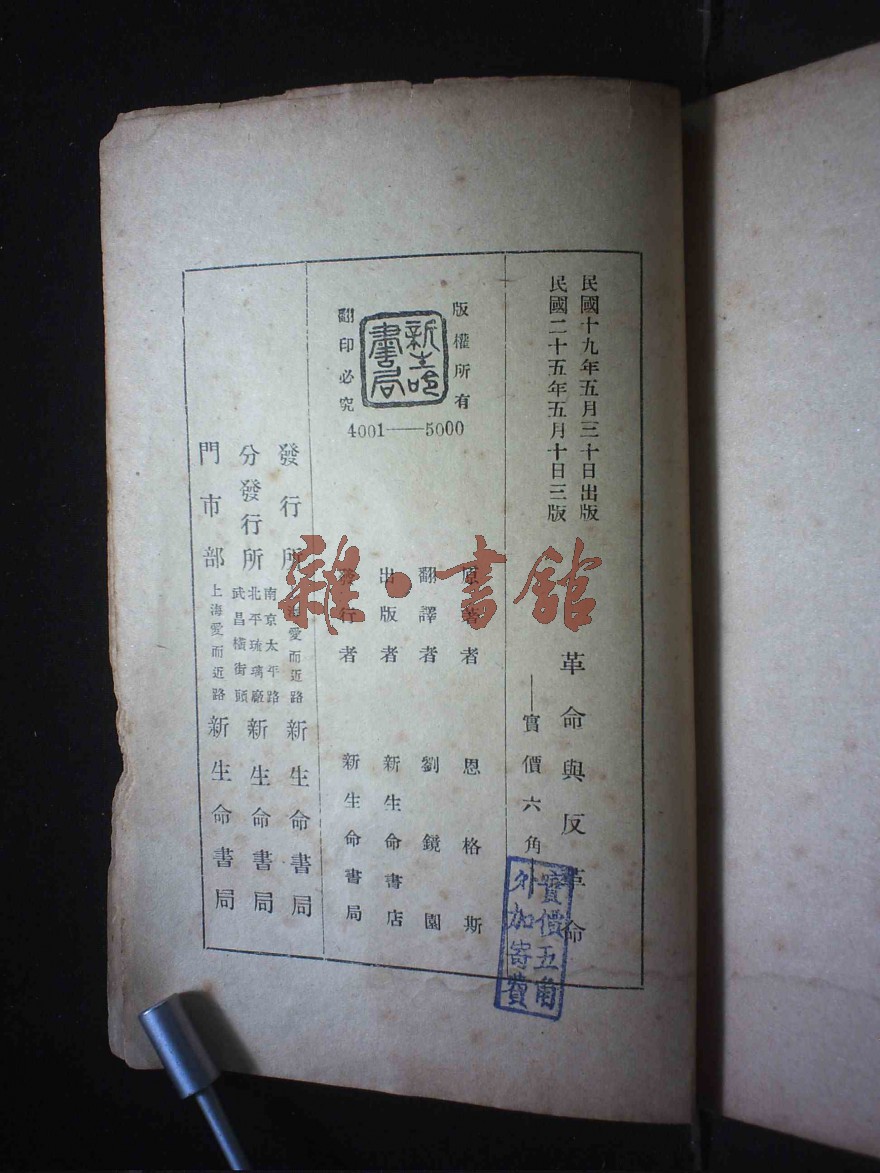 民國十九年五月三十日出版
民國二十五年五月十日三版
革命與反革命
——實價六角
實價五角
外加寄費
版權所有
新生命書局
翻印必究
4001——5000
原著者 恩格斯
翻譯者 劉鏡園
出版者 新生命書店
發行者 新生命書局
發行所 上海愛而近路 新生命書局
分發行所 南京太平路 北平琉璃廠 武昌橫街頭 新生命書局
門市部 上海愛而近路 新生命書局
雜·書館